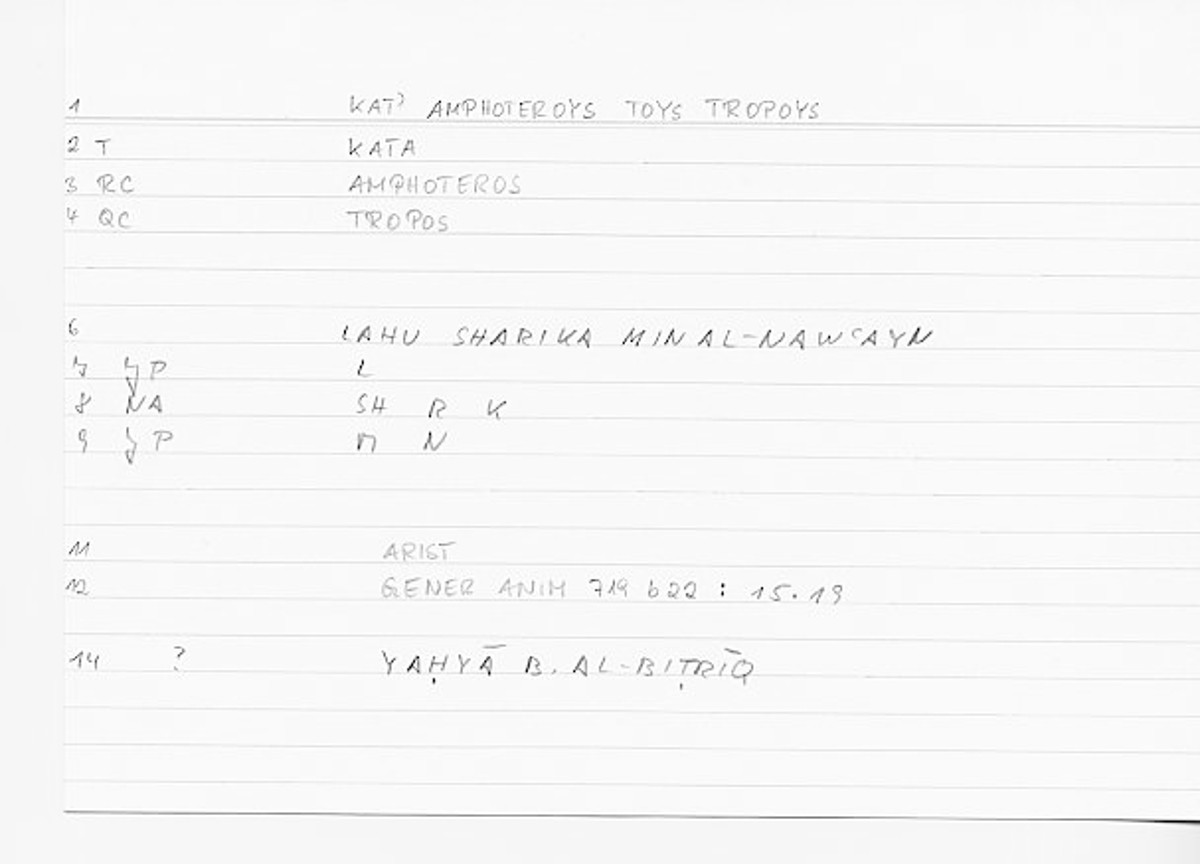 1 KAT' AMPHOTEROYS TOYS TROPOYS
2 T KATA
3 RC AMPHOTEROS
4 QC TROPOS
6 LAHU SHARIKA MIN AL-NAWʿAYN
7 P L
8 NA SH R K
9 P M N
11 ARIST
12 GENER ANIM 719 b22 : 15.19
14 ? YAḤYĀ B. AL-BIṬRĪQ